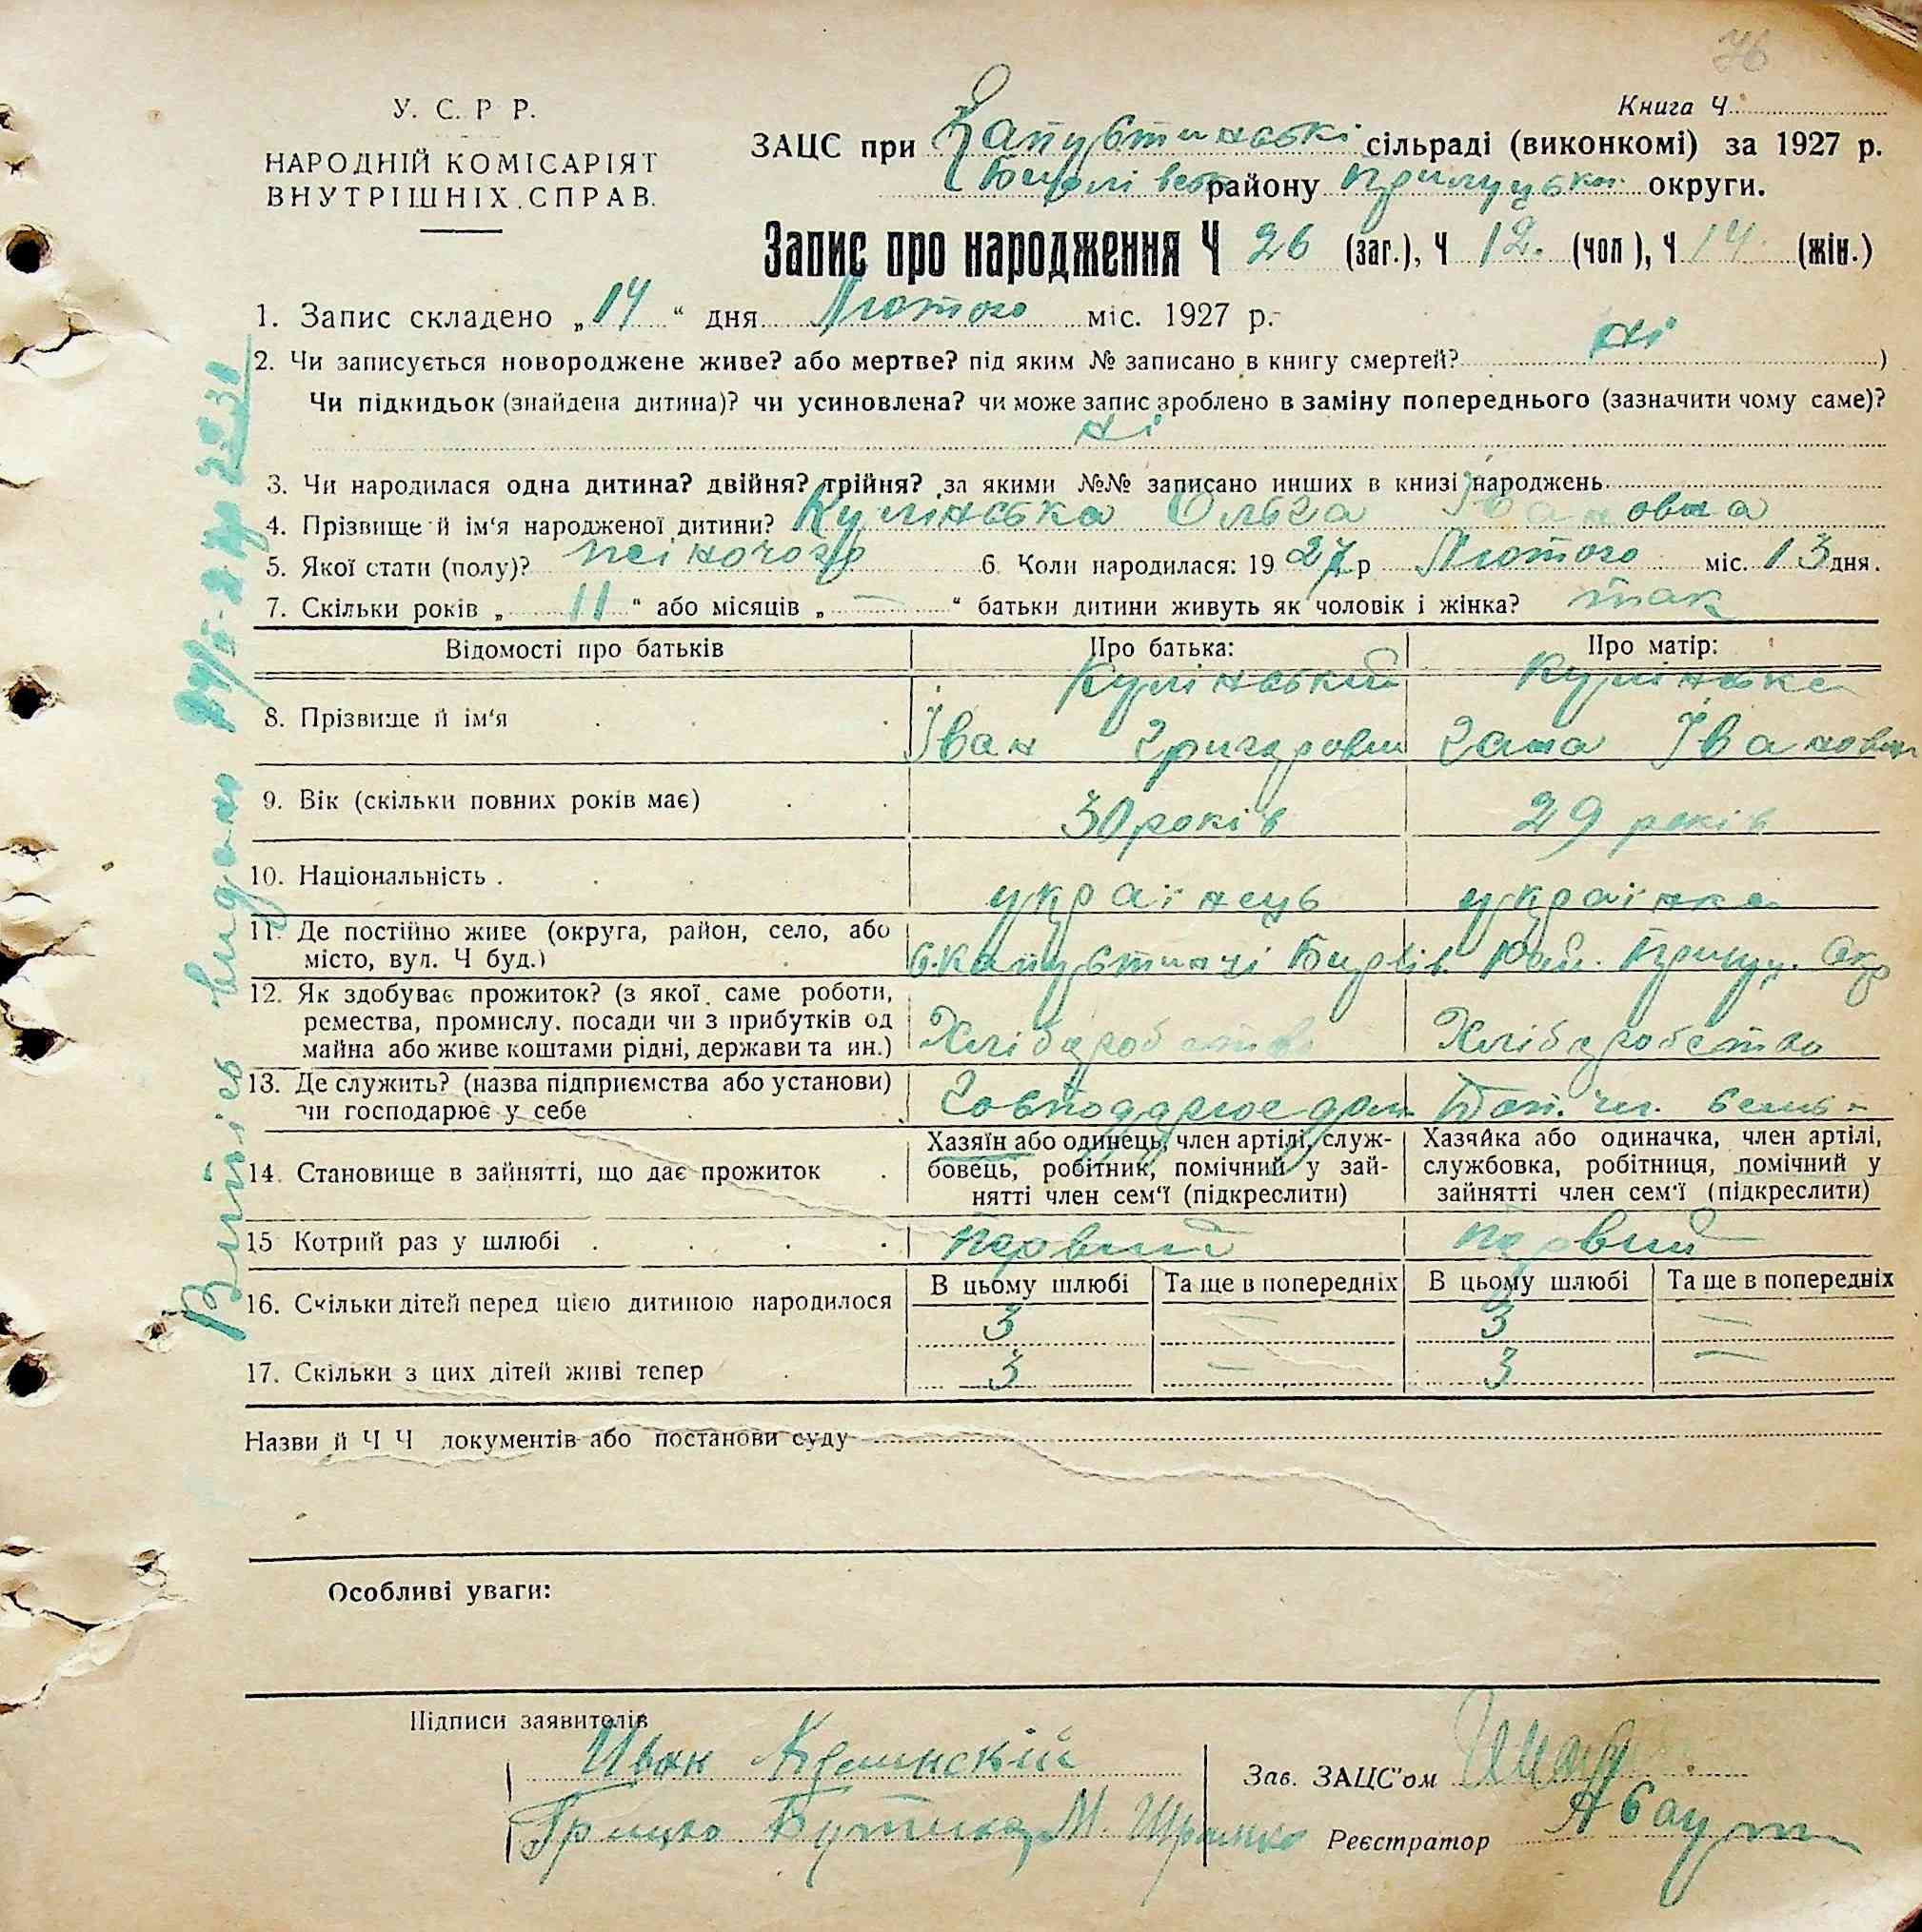 76
У. С. Р Р.
НАРОДНІЙ КОМІСАРІЯТ
ВНУТРІШНІХ СПРАВ.
Книга Ч
ЗАЦС при Капустинські сільраді (виконкомі) за 1927 р.
району Прилуцько округи.
Запис про народження Ч 26 (заг.), Ч 12. (чол), Ч 14 (жін.)
1. Запис складено „14“ дня Лютого міс. 1927 р.
2. Чи записується новороджене живе? або мертве? під яким № записано в книгу смертей? ні )
Чи підкидьок (знайдена дитина)? чи усиновлена? чи може запис зроблено в заміну попереднього (зазначити чому саме)?
ні
3. Чи народилася одна дитина? двійня? трійня? за якими №№ записано инших в книзі народжень
4. Прізвище й ім‘я народженої дитини? Кулінська Ольга Івановна
5. Якої стати (полу)? жіночого 6. Коли народилася: 19 27 р Лютого міс. 13 дня.
7. Скільки років „ 11 “ або місяців „ — “ батьки дитини живуть як чоловік і жінка? так
Відомості про батьків Про батька: Про матір:
Кулінський Кулінська
8. Прізвище й ім‘я Іван Григорович Ганна Івановна
9. Вік (скільки повних років має) 30 років 29 років
10. Національність . українець українка
11. Де постійно живе (округа, район, село, або
місто, вул. Ч буд.) с. Капустинці Бирлів. Рай. Прилуц. Окр
12. Як здобуває прожиток? (з якої саме роботи,
ремества, промислу. посади чи з прибутків од
майна або живе коштами рідні, держави та ин.) Хлібороботво Хлібороботво
13. Де служить? (назва підприємства або установи)
чи господарює у себе Господарює дом. Пом. чл. семь-
14. Становище в зайнятті, що дає прожиток
Хазяїн або одинець, член артілі, служ-
бовець, робітник, помічний у зай-
нятті член сем‘ї (підкреслити)
Хазяйка або одиначка, член артілі,
службовка, робітниця, помічний у
зайнятті член сем‘ї (підкреслити)
15 Котрий раз у шлюбі . первий первий
В цьому шлюбі Та ще в попередніх В цьому шлюбі Та ще в попередніх
16. Скільки дітей перед цією дитиною народилося 3 — 3 —
17. Скільки з цих дітей живі тепер 3 — 3 —
Назви й Ч Ч документів або постанови суду
Особливі уваги:
Підписи заявителів
Иван Кулинскій
Грицко Бутика М. Щрамко
Зав. ЗАЦС‘ом
Реєстратор
Витяг видан